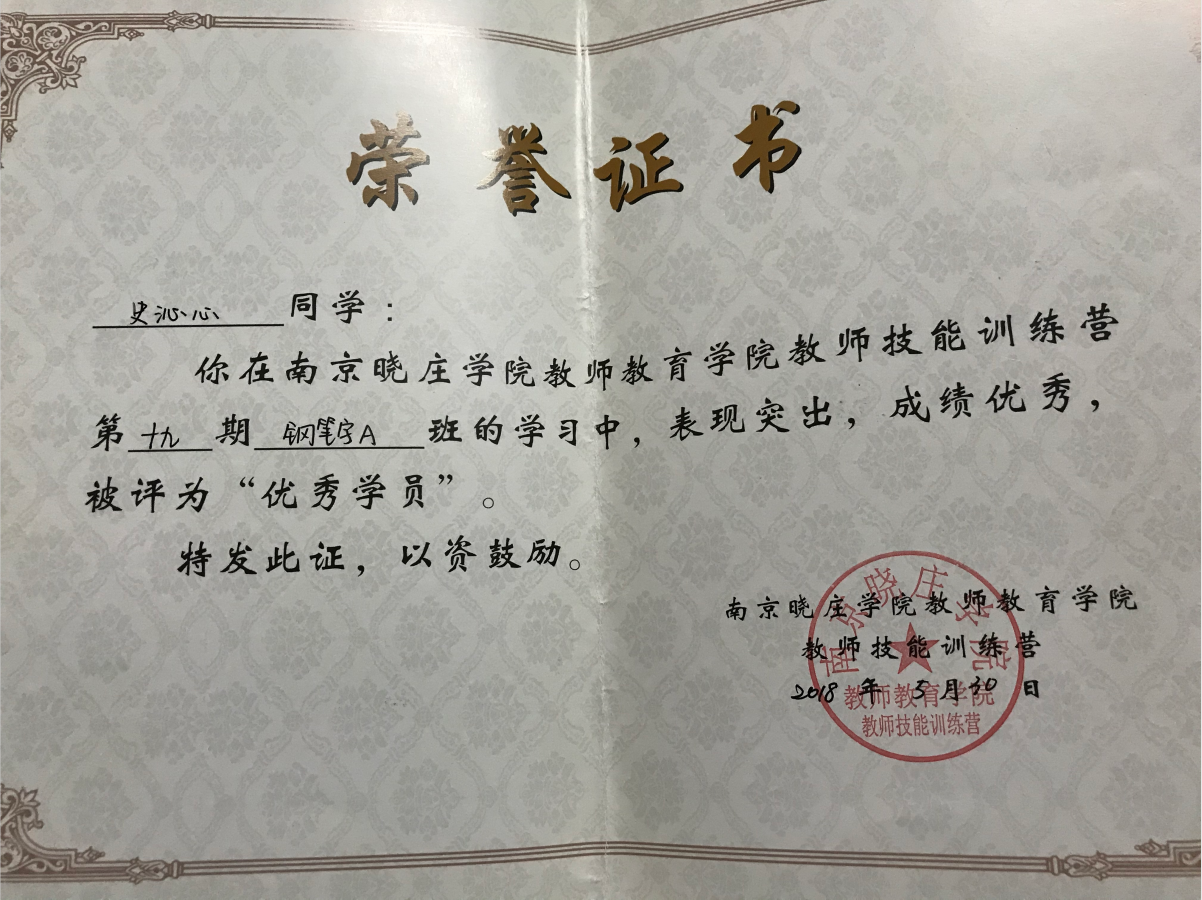 荣誉证书
史沁心同学：
你在南京晓庄学院教师教育学院教师技能训练营
第十九期钢笔字A班的学习中，表现突出，成绩优秀，
被评为“优秀学员”。
特发此证，以资鼓励。
南京晓庄学院教师教育学院
教师技能训练营
2018年5月30日
南京晓庄学院
教师教育学院
教师技能训练营